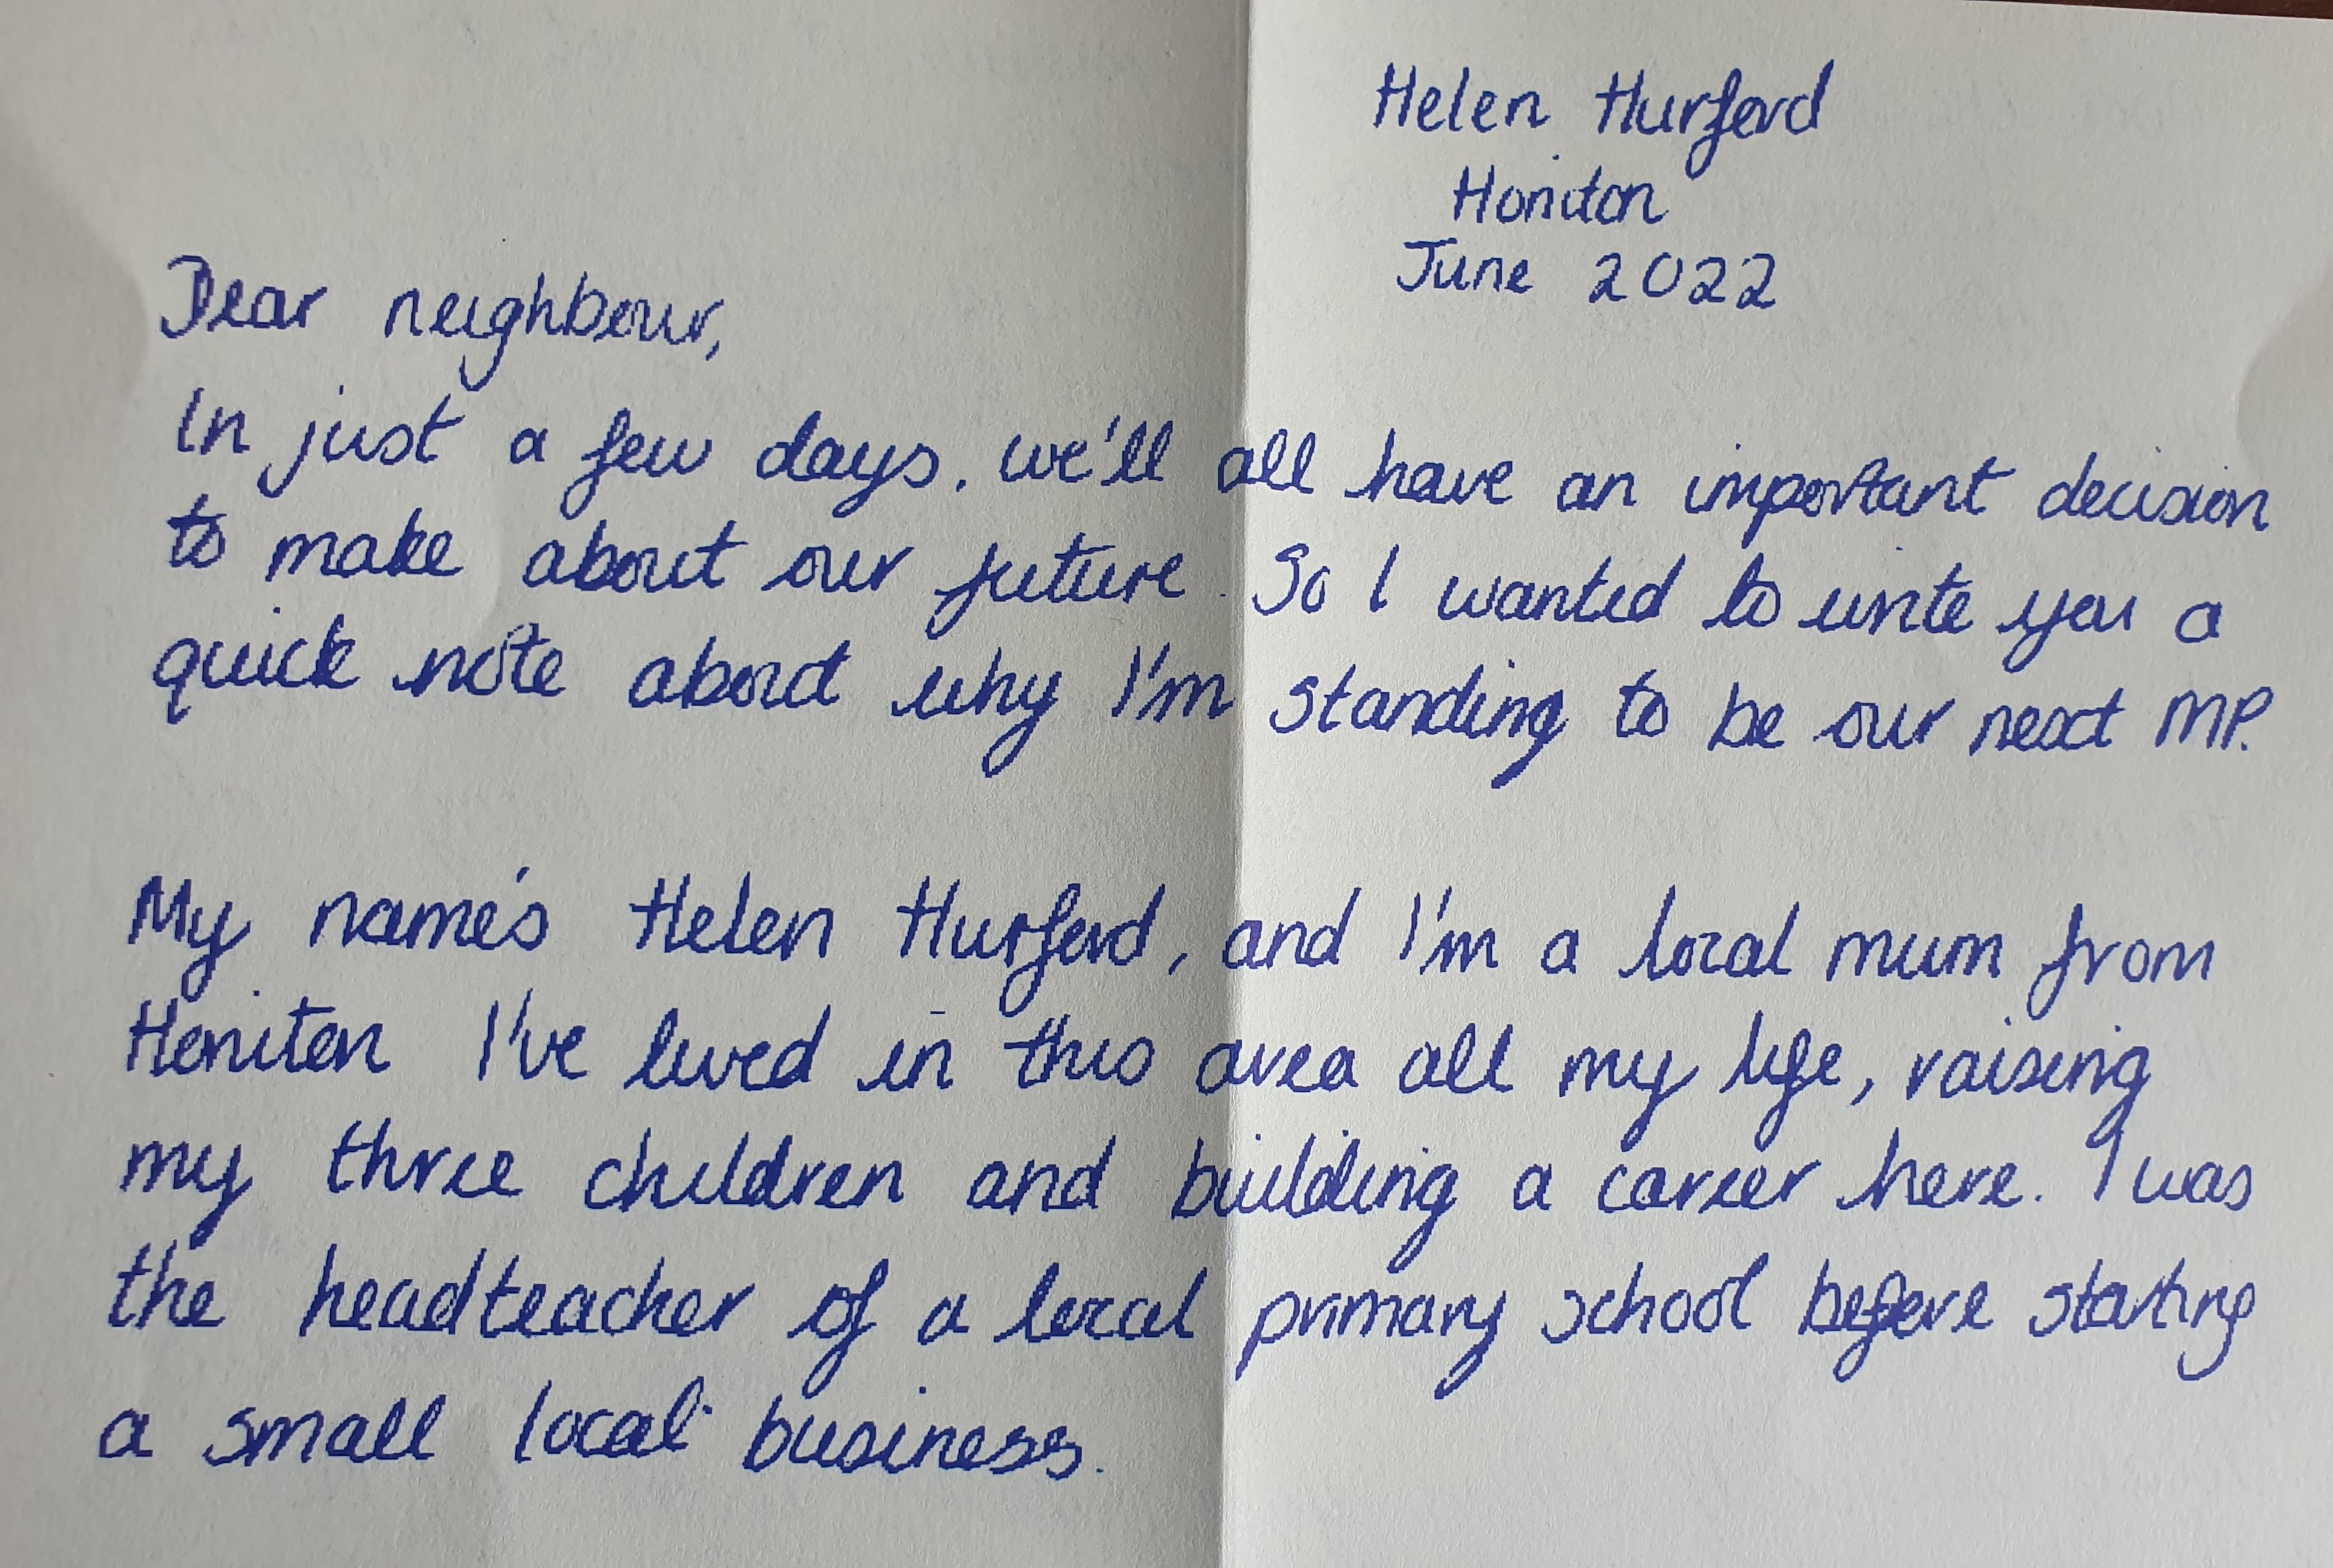 Helen Hurford
Honiton
June 2022
Dear neighbour,
In just a few days, we'll all have an important decision
to make about our future. So I wanted to write you a
quick note about why I'm standing to be our next MP.
My name's Helen Hurford, and I'm a local mum from
Honiton I've lived in this area all my life, raising
my three children and building a career here. I was
the headteacher of a local primary school before starting
a small local business.